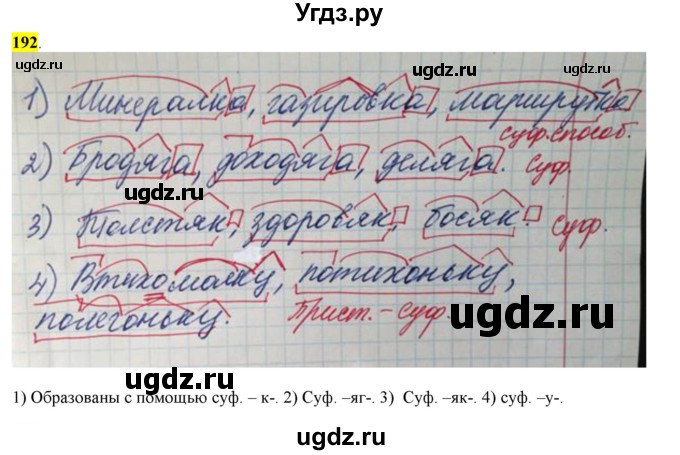 Угдз.ру
192.
1) Минералка, газировка, маршрутка
суф. способ.
2) Бродяга, доходяга, деляга. Суф.
3) Толстяк, здоровяк, босяк. Суф.
4) Втихомолку, потихоньку,
полегоньку. Прист. – суф.
1) Образованы с помощью суф. – к-. 2) Суф. –яг-. 3) Суф. –як-. 4) суф. –у-.
ugdz.ru
ugdz.ru
ugdz.ru
ugdz.ru
ugdz.ru
ugdz.ru
ugdz.ru
ugdz.ru
ugdz.ru
ugdz.ru
ugdz.ru